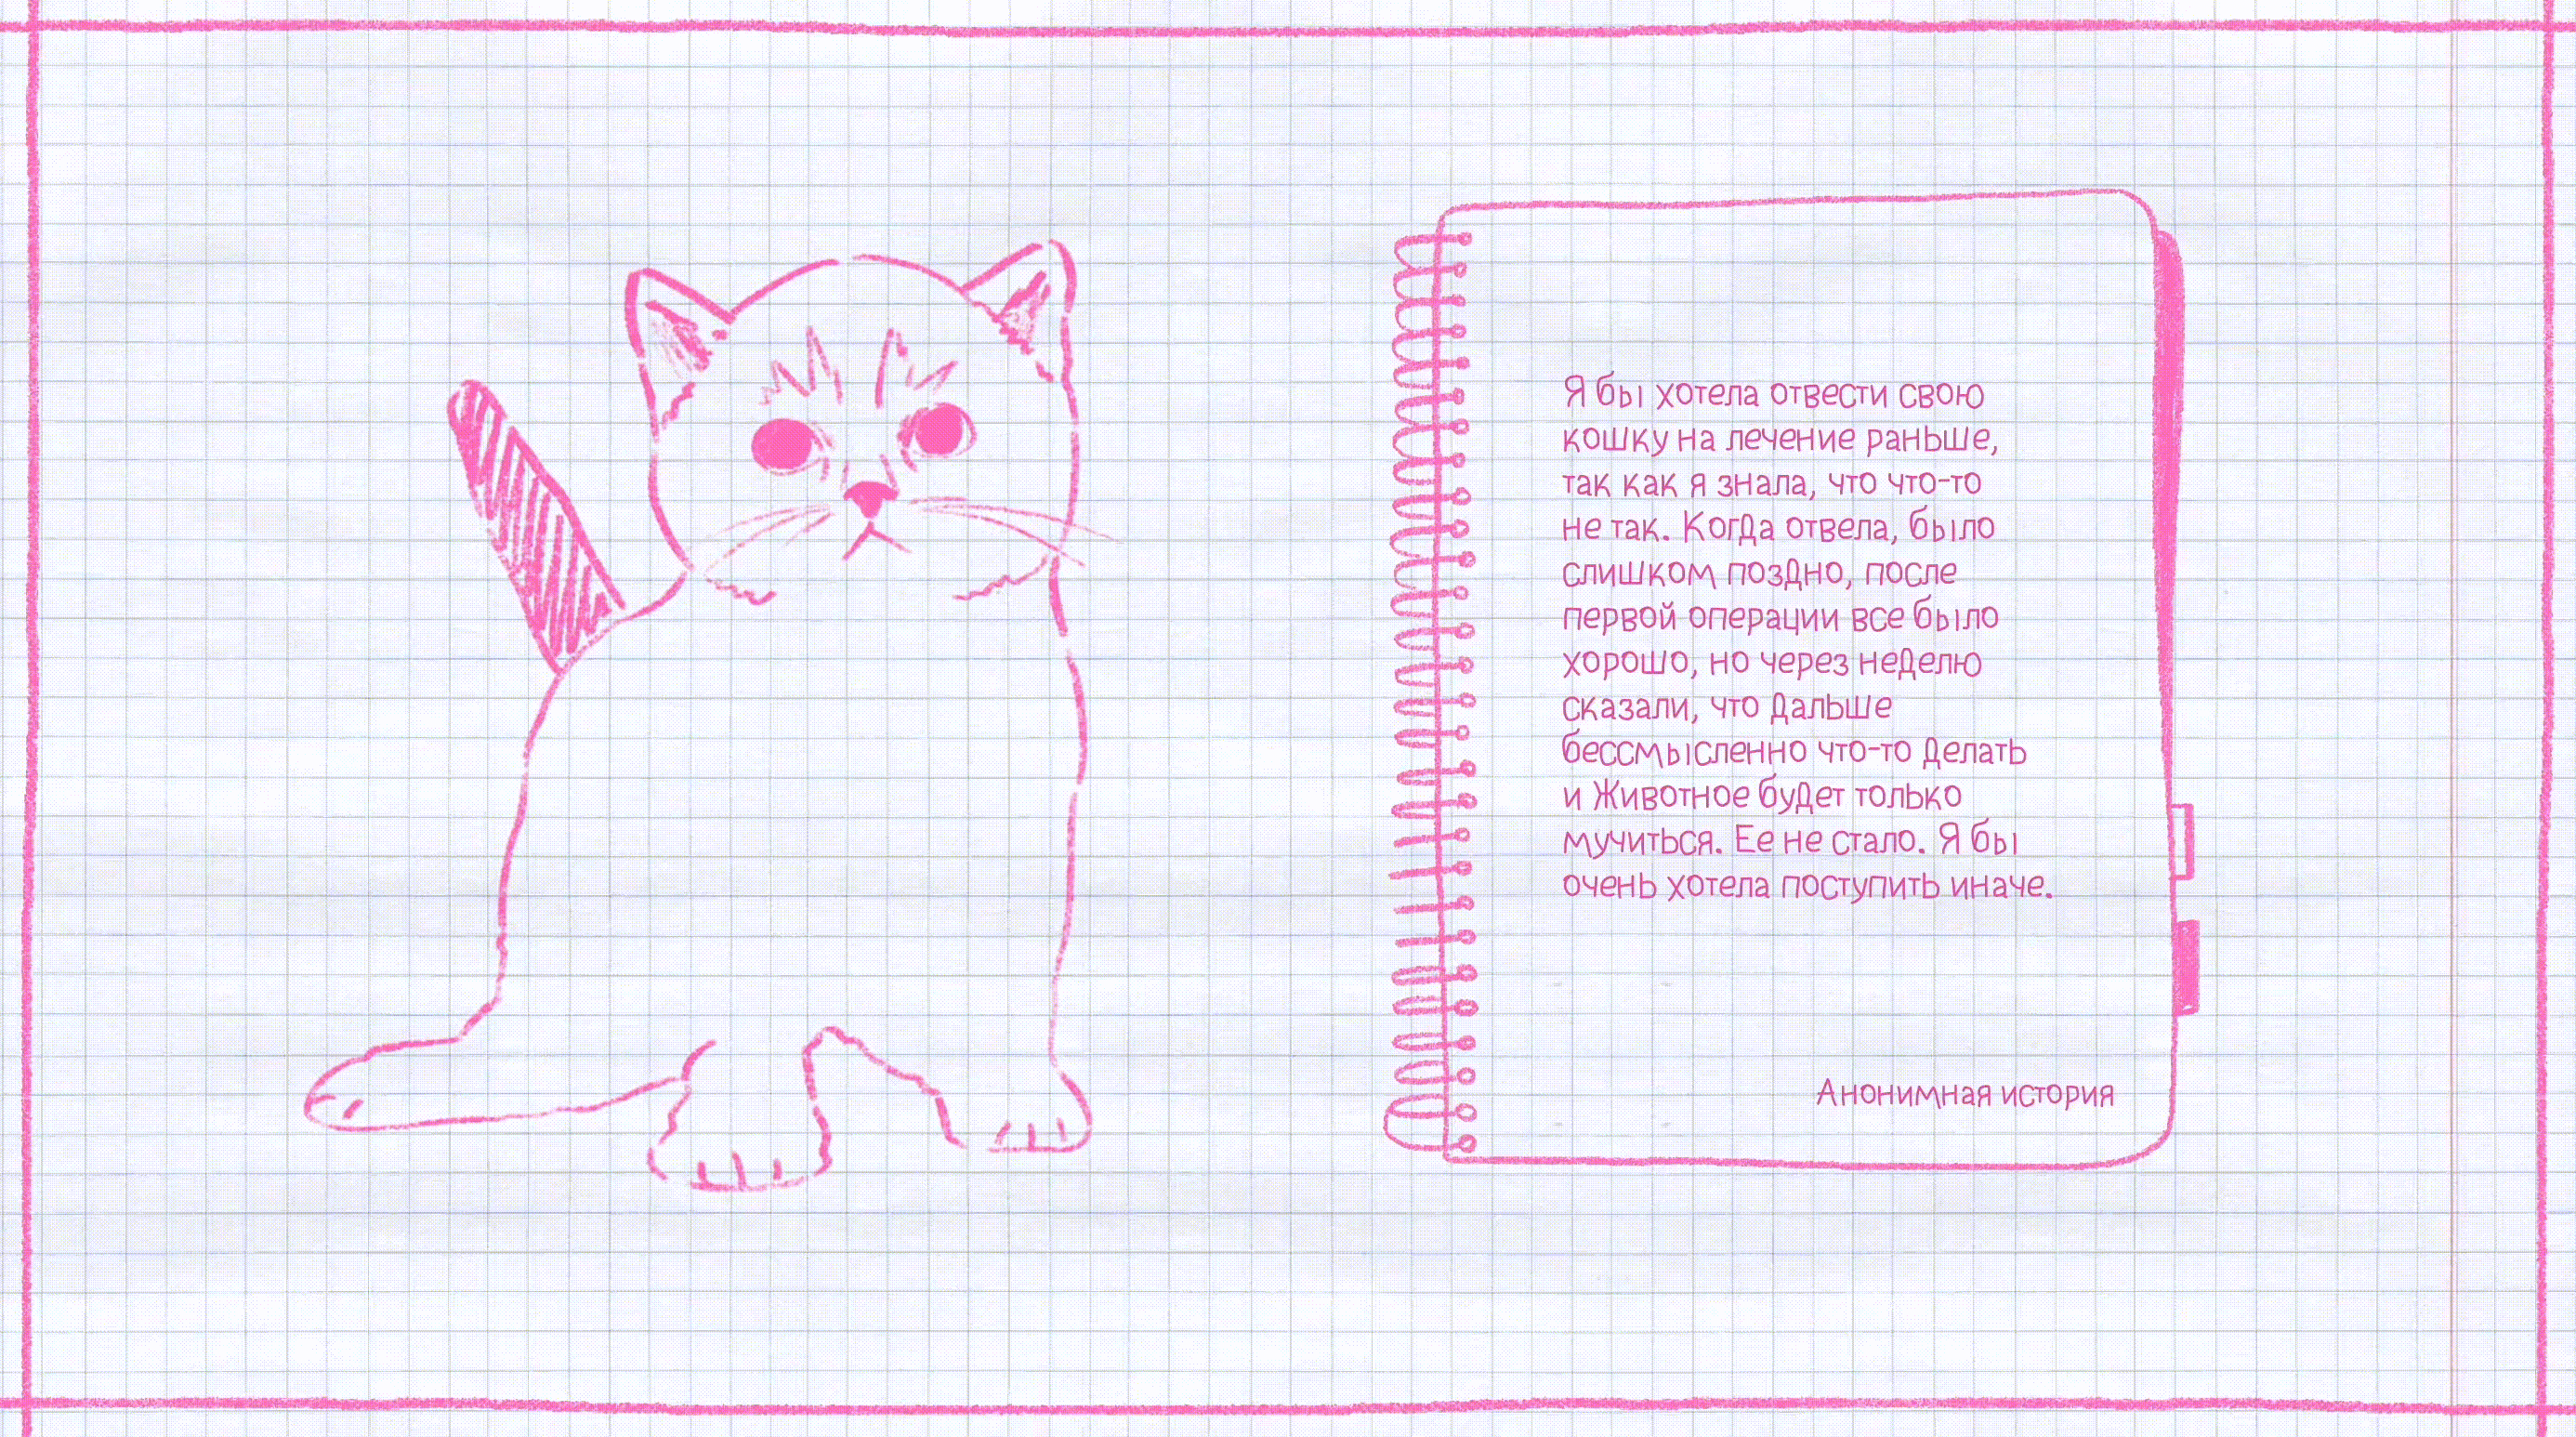 Я бы хотела отвести свою
кошку на лечение раньше,
так как я знала, что что-то
не так. Когда отвела, было
слишком поздно, после
первой операции все было
хорошо, но через неделю
сказали, что дальше
бессмысленно что-то делать
и животное будет только
мучиться. Ее не стало. Я бы
очень хотела поступить иначе.
Анонимная история